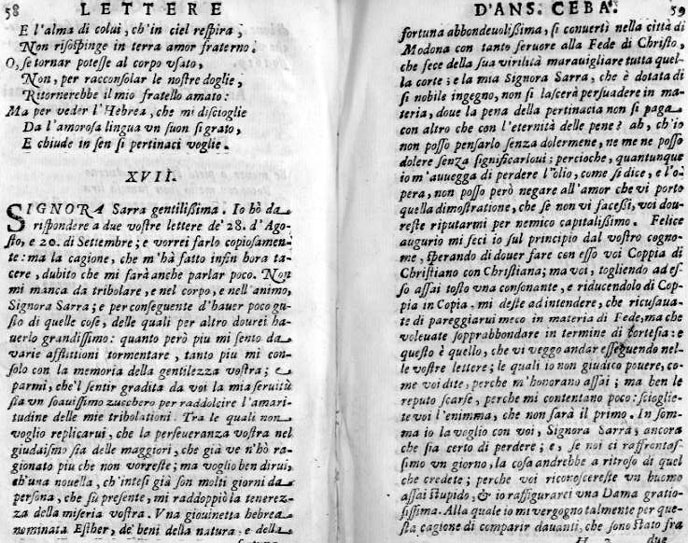 58 LETTERE
E l'alma di colui, ch'in ciel respira,
Non risospinge in terra amor fraterno.
O, se tornar potesse al corpo vsato,
Non, per racconsolar le nostre doglie,
Ritornerebbe il mio fratello amato:
Ma per veder l'Hebrea, che mi discioglie
Da l'amorosa lingua vn suon sì grato,
E chiude in sen sì pertinaci voglie.
XVII.
SIGNORA Sarra gentilissima. Io hò da
rispondere a due vostre lettere de' 28. d'Ago-
sto, e 20. di Settembre; e vorrei farlo copiosamen-
te: ma la cagione, che m'hà fatto infin hora ta-
cere, dubito che mi farà anche parlar poco. Non
mi manca da tribolare, e nel corpo, e nell'animo,
Signora Sarra; e per conseguente d'hauer poco gu-
sto di quelle cose, delle quali per altro dourei ha-
uerlo grandissimo: quanto però piu mi sento da
varie afflittioni tormentare, tanto piu mi con-
solo con la memoria della gentilezza vostra; e
parmi, che'l sentir gradita da voi la mia seruitù
sia vn soauissimo zucchero per raddolcire l'amari-
tudine delle mie tribolationi. Tra le quali non
voglio replicarui, che la perseueranza vostra nel
giudaismo sia delle maggiori, che già ve n'hò ra-
gionato piu che non vorreste; ma voglio ben dirui,
ch'vna nouella, ch'intesi già son molti giorni da
persona, che fù presente, mi raddoppiò la tenerez-
za della miseria vostra. Vna giouinetta hebrea
nominata Esther, de' beni della natura, e della
D'ANS. CEBA'. 59
fortuna abbondeuolissima, si conuertì nella città di
Modona con tanto feruore alla Fede di Christo,
che fece della sua virilità marauigliare tutta quel-
la corte; e la mia Signora Sarra, che è dotata di
sì nobile ingegno, non si lascerà persuadere in ma-
teria, doue la pena della pertinacia non si paga
con altro che con l'eternità delle pene? ah, ch'io
non posso pensarlo senza dolermene, ne me ne posso
dolere senza significarloui; percioche, quantunque
io m'auuegga di perdere l'olio, come si dice, e l'o-
pera, non posso però negare all'amor che vi porto
quella dimostratione, che se non vi facessi, voi dou-
reste riputarmi per nemico capitalissimo. Felice
augurio mi feci io sul principio dal vostro cogno-
me, sperando di douer fare con esso voi Coppia di
Christiano con Christiana; ma voi, togliendo ad es-
so assai tosto vna consonante, e riducendolo di Cop-
pia in Copia, mi deste ad intendere, che ricusaua-
te di pareggiarui meco in materia di Fede, ma che
voleuate soprabbondare in termine di cortesia: e
questo è quello, che vi veggo andar esseguendo nel-
le vostre lettere; le quali io non giudico pouere, co-
me voi dite, perche m'honorano assai; ma ben le
reputo scarse, perche mi contentano poco: scioglie-
te voi l'enimma, che non sarà il primo. In som-
ma io la voglio con voi, Signora Sarra; ancora
che sia certo di perdere; e, se noi ci raffrontas-
simo vn giorno, la cosa andrebbe a ritroso di quel
che credete; perche voi riconoscereste vn huomo
assai stupido, & io raffigurarei vna Dama gratio-
sissima. Alla quale io mi vergogno talmente per que-
sta cagione di comparir dauanti, che sono stato fra
H 2 due